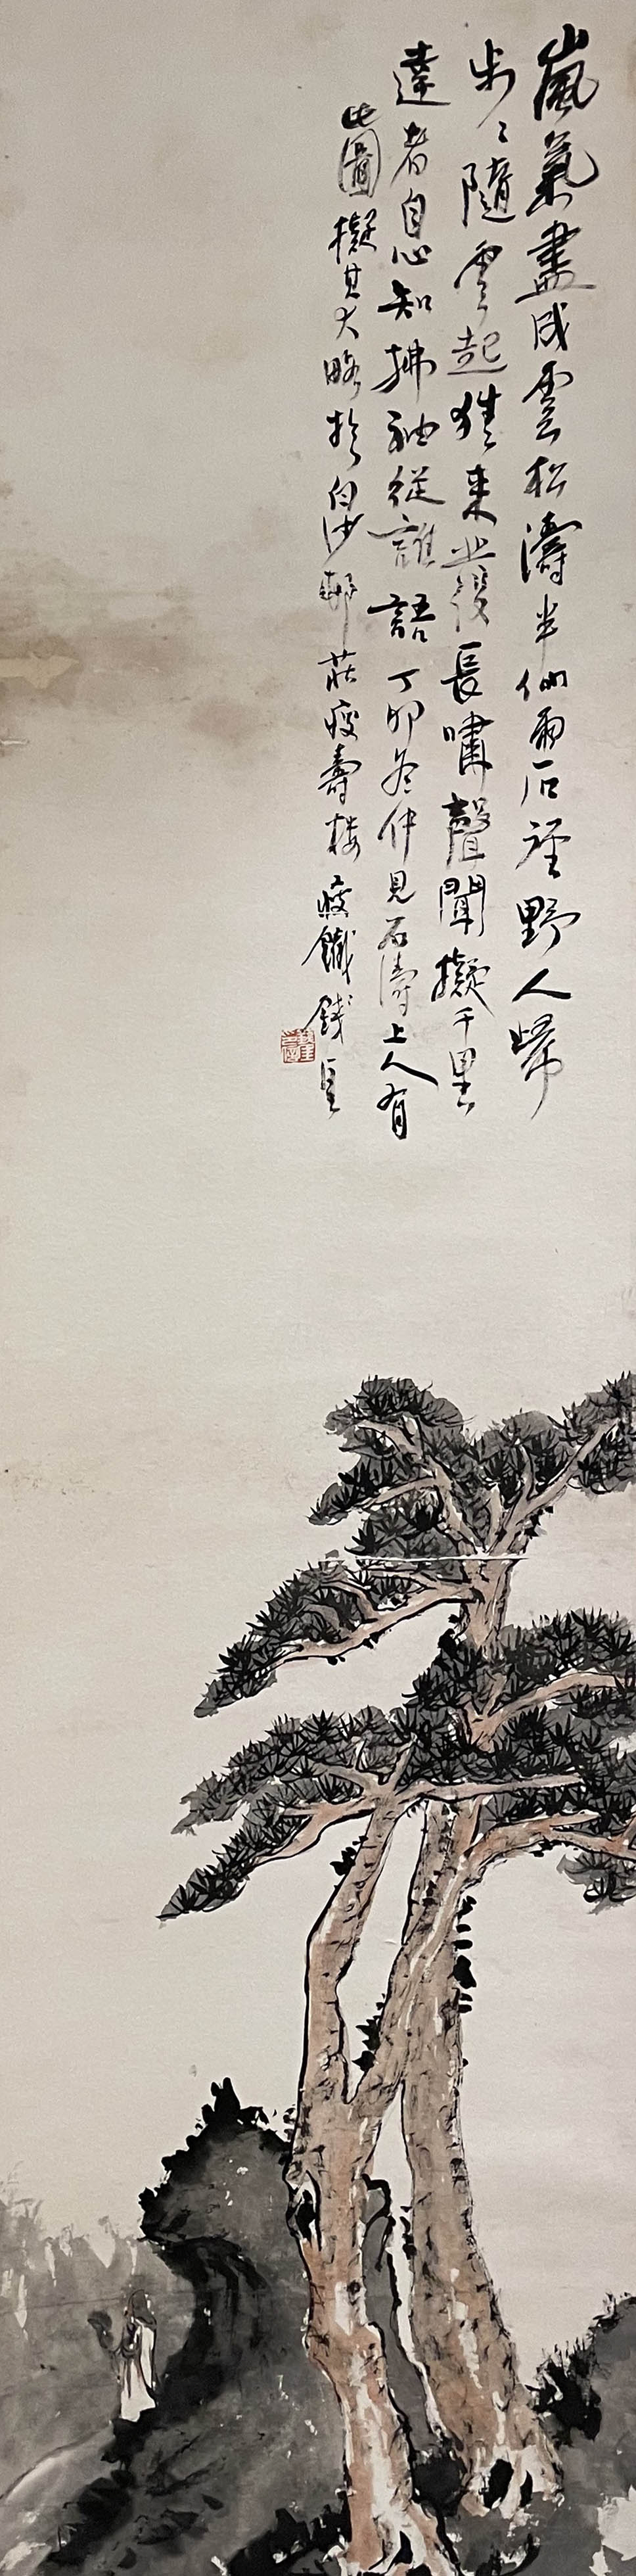 嵐氣盡成雲松濤半似雨石徑野人歸
步々隨雲起獨來無後長嘯聲聞擬千里
達者自心知拂袖從誰語丁卯冬仲見石濤上人有
此圖擬其大略於白沙邨莊瘦壽樓瘦鐵錢厓